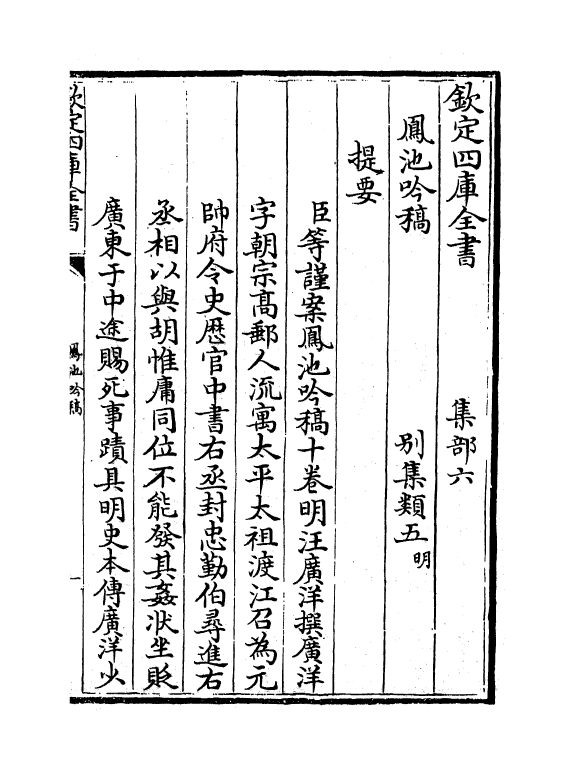 欽定四庫全書　集部六
鳳池吟稿　别集類五明
提要
臣等謹案鳳池吟稿十卷明汪廣洋撰廣洋
字朝宗髙郵人流寓太平太祖渡江召為元
帥府令史歴官中書右丞封忠勤伯尋進右
丞相以與胡惟庸同位不能發其姦状坐貶
廣東于中途賜死事蹟具明史本傳廣洋少
欽定四庫全書
鳳池吟稿
一